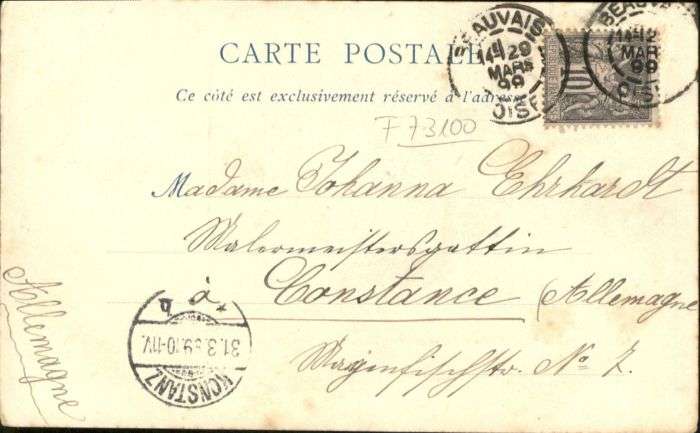 CARTE POSTALE
Ce côté est exclusivement réservé à l'adresse
BEAUVAIS
29
MARS
99
OISE
BEAUV
MAR
99
OISE
10
F 73100
Madame Johanna Ehrhardt
Malermeistersgattin
à Constance (Allemagne
str. No 7.
Allemagne
KONSTANZ
31.3.99.10-11V.